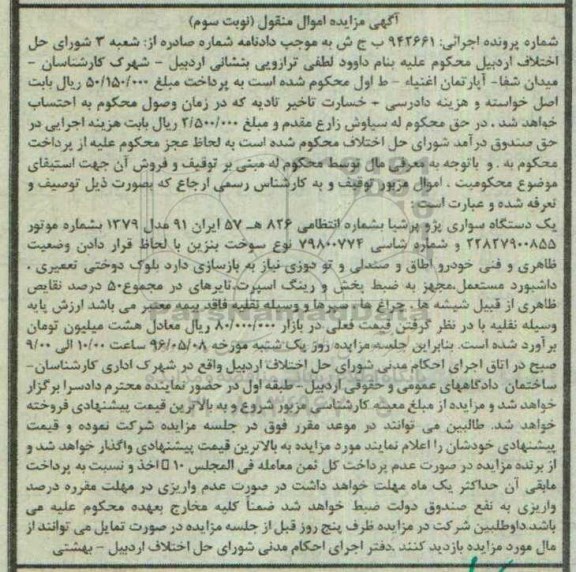 آگهی مزایده اموال منقول (نوبت سوم)
شماره پرونده اجرائی: ۹۴۲۶۶۱ ب ج ش به موجب دادنامه شماره صادره از: شعبه ۳ شورای حل
اختلاف اردبیل محکوم علیه بنام داوود لطفی ترازویی بنشانی اردبیل - شهرک کارشناسان -
میدان شفا- آپارتمان اغنیاء - ط اول محکوم شده است به پرداخت مبلغ ۵۰/۱۵۰/۰۰۰ ریال بابت
اصل خواسته و هزینه دادرسی + خسارت تاخیر تادیه که در زمان وصول محکوم به احتساب
خواهد شد . در حق محکوم له سیاوش زارع مقدم و مبلغ ۲/۵۰۰/۰۰۰ ریال بابت هزینه اجرایی در
حق صندوق درآمد شورای حل اختلاف محکوم شده است به لحاظ عجز محکوم علیه از پرداخت
محکوم به . و باتوجه به معرفی مال توسط محکوم له مبنی بر توقیف و فروش آن جهت استیفای
موضوع محکومیت . اموال مزبور توقیف و به کارشناس رسمی ارجاع که بصورت ذیل توصیف و
تعرفه شده و عبارت است :
یک دستگاه سواری پژو پرشیا بشماره انتظامی ۸۲۶ هـ ۵۷ ایران ۹۱ مدل ۱۳۷۹ بشماره موتور
۲۲۸۲۷۹۰۰۸۵۵ و شماره شاسی ۷۹۸۰۰۷۷۴ نوع سوخت بنزین با لحاظ قرار دادن وضعیت
ظاهری و فنی خودرو اطاق و صندلی و تو دوزی نیاز به بازسازی دارد بلوک دوختی تعمیری .
داشبورد مستعمل.مجهز به ضبط پخش و رینگ اسپرت.تایرهای در مجموع ۵۰ درصد نقایص
ظاهری از قبیل شیشه ها . چراغ ها . سپرها و وسیله نقلیه فاقد بیمه معتبر می باشد ارزش پایه
وسیله نقلیه با در نظر گرفتن قیمت فعلی در بازار ۸۰/۰۰۰/۰۰۰ ریال معادل هشت میلیون تومان
برآورد شده است. بنابراین جلسه مزایده روز یک شنبه مورخه ۹۶/۰۵/۰۸ ساعت ۱۰/۰۰ الی ۹/۰۰
صبح در اتاق اجرای احکام مدنی شورای حل اختلاف اردبیل واقع در شهرک اداری کارشناسان-
ساختمان دادگاههای عمومی و حقوقی اردبیل - طبقه اول در حضور نماینده محترم دادسرا برگزار
خواهد شد و مزایده از مبلغ معینه کارشناسی مزبور شروع و به بالاترین قیمت پیشنهادی فروخته
خواهد شد. طالبین می توانند در موعد مقرر فوق در جلسه مزایده شرکت نموده و قیمت
پیشنهادی خودشان را اعلام نمایند مورد مزایده به بالاترین قیمت پیشنهادی واگذار خواهد شد و
از برنده مزایده در صورت عدم پرداخت کل ثمن معامله فی المجلس ۱۰ اخذ و نسبت به پرداخت
مابقی آن حداکثر یک ماه مهلت خواهد داشت در صورت عدم واریزی در مهلت مقرره درصد
واریزی به نفع صندوق دولت ضبط خواهد شد ضمناً کلیه مخارج بعهده محکوم علیه می
باشد.داوطلبین شرکت در مزایده ظرف پنج روز قبل از جلسه مزایده در صورت تمایل می توانند از
مال مورد مزایده بازدید کنند .دفتر اجرای احکام مدنی شورای حل اختلاف اردبیل - بهشتی